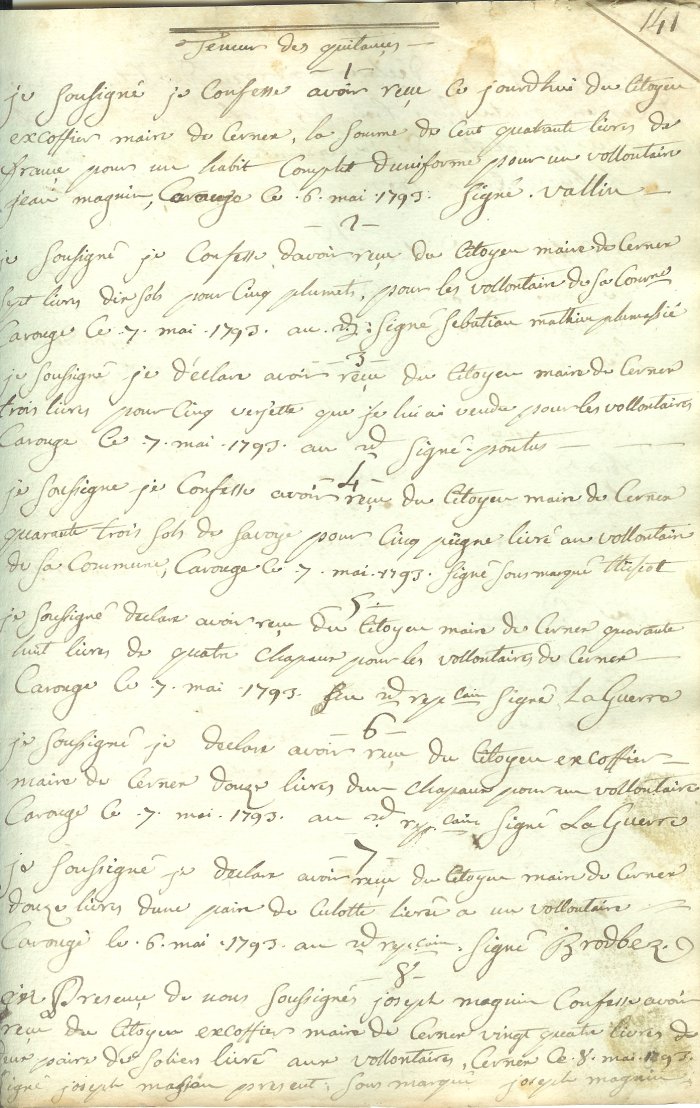 141
Teneur des quitances
1
je soussigné je Confesse avoir reçu ce jourdhui du Citoyen
excoffier maire de Cerner, la somme de Cent quarante livres de
france pour un habit Complet duniforme pour un vollontaire
jean magnin, Carouge ce .6. mai .1793. signé . vallin
2
je soussigné je Confesse davoir reçu du Citoyen maire de Cerner
sept livres dix sols pour Cinq plumets, pour les vollontaire de sa Comune
Carouge Ce .7. mai .1793. au 2d : signé sebatian mathieu plumassié
3
je soussigné je déclare avoir reçu du Citoyen maire de Cerner
trois livres pour Cinq verjette que je lui ai vendu pour les vollontaires
Carouge Ce .7. mai .1793. au 2d signé . pontus
4
je soussigne je Confesse avoir reçu du Citoyen maire de Cerner
quarante trois sols de savoye pour Cinq peigne livré au vollontair
de sa Commune, Carouge Ce .7. mai .1793. signé sous marqué
5
je soussigné declare avoir reçu du Citoyen maire de Cerner quarante
huit livres de quatre Chapaux pour les vollontaires de Cerner
Carouge Ce .7. mai .1793. 2d rep.cain signé La Guerre
6
je soussigné je declare avoir reçu du Citoyen excoffier
maire de Cerner douze livres dun Chapaux pour un vollontaire
Carouge Ce .7. mai .1793. au 2d rep.caine signé La Guerre
7
je soussigné je declare avoir reçu du Citoyen maire de Cerner
douze livres dune paire de Culotte livrée a un vollontaire
Carouge le .6. mai .1793. au 2d rep.cain. signé Brodbez
8
en Presence de nous soussignés joseph magnin Confesse avoir
reçu du Citoyen excoffier maire de Cerner vingt quatre livres de
deux paire de soliers livré aux vollontaires, Cerner Ce .8. mai .1793.
signé joseph present : sous marqué joseph magnin